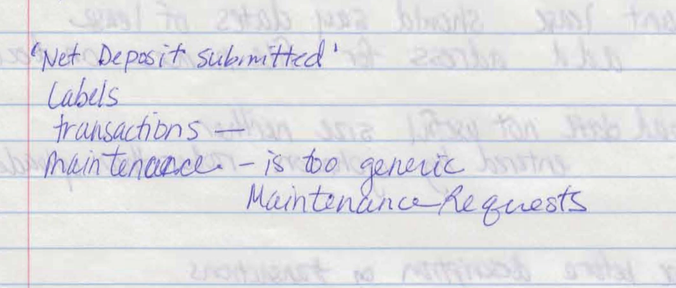 'Net Deposit submitted'
Labels
transactions —
Maintenance - is too generic
Maintenance Requests